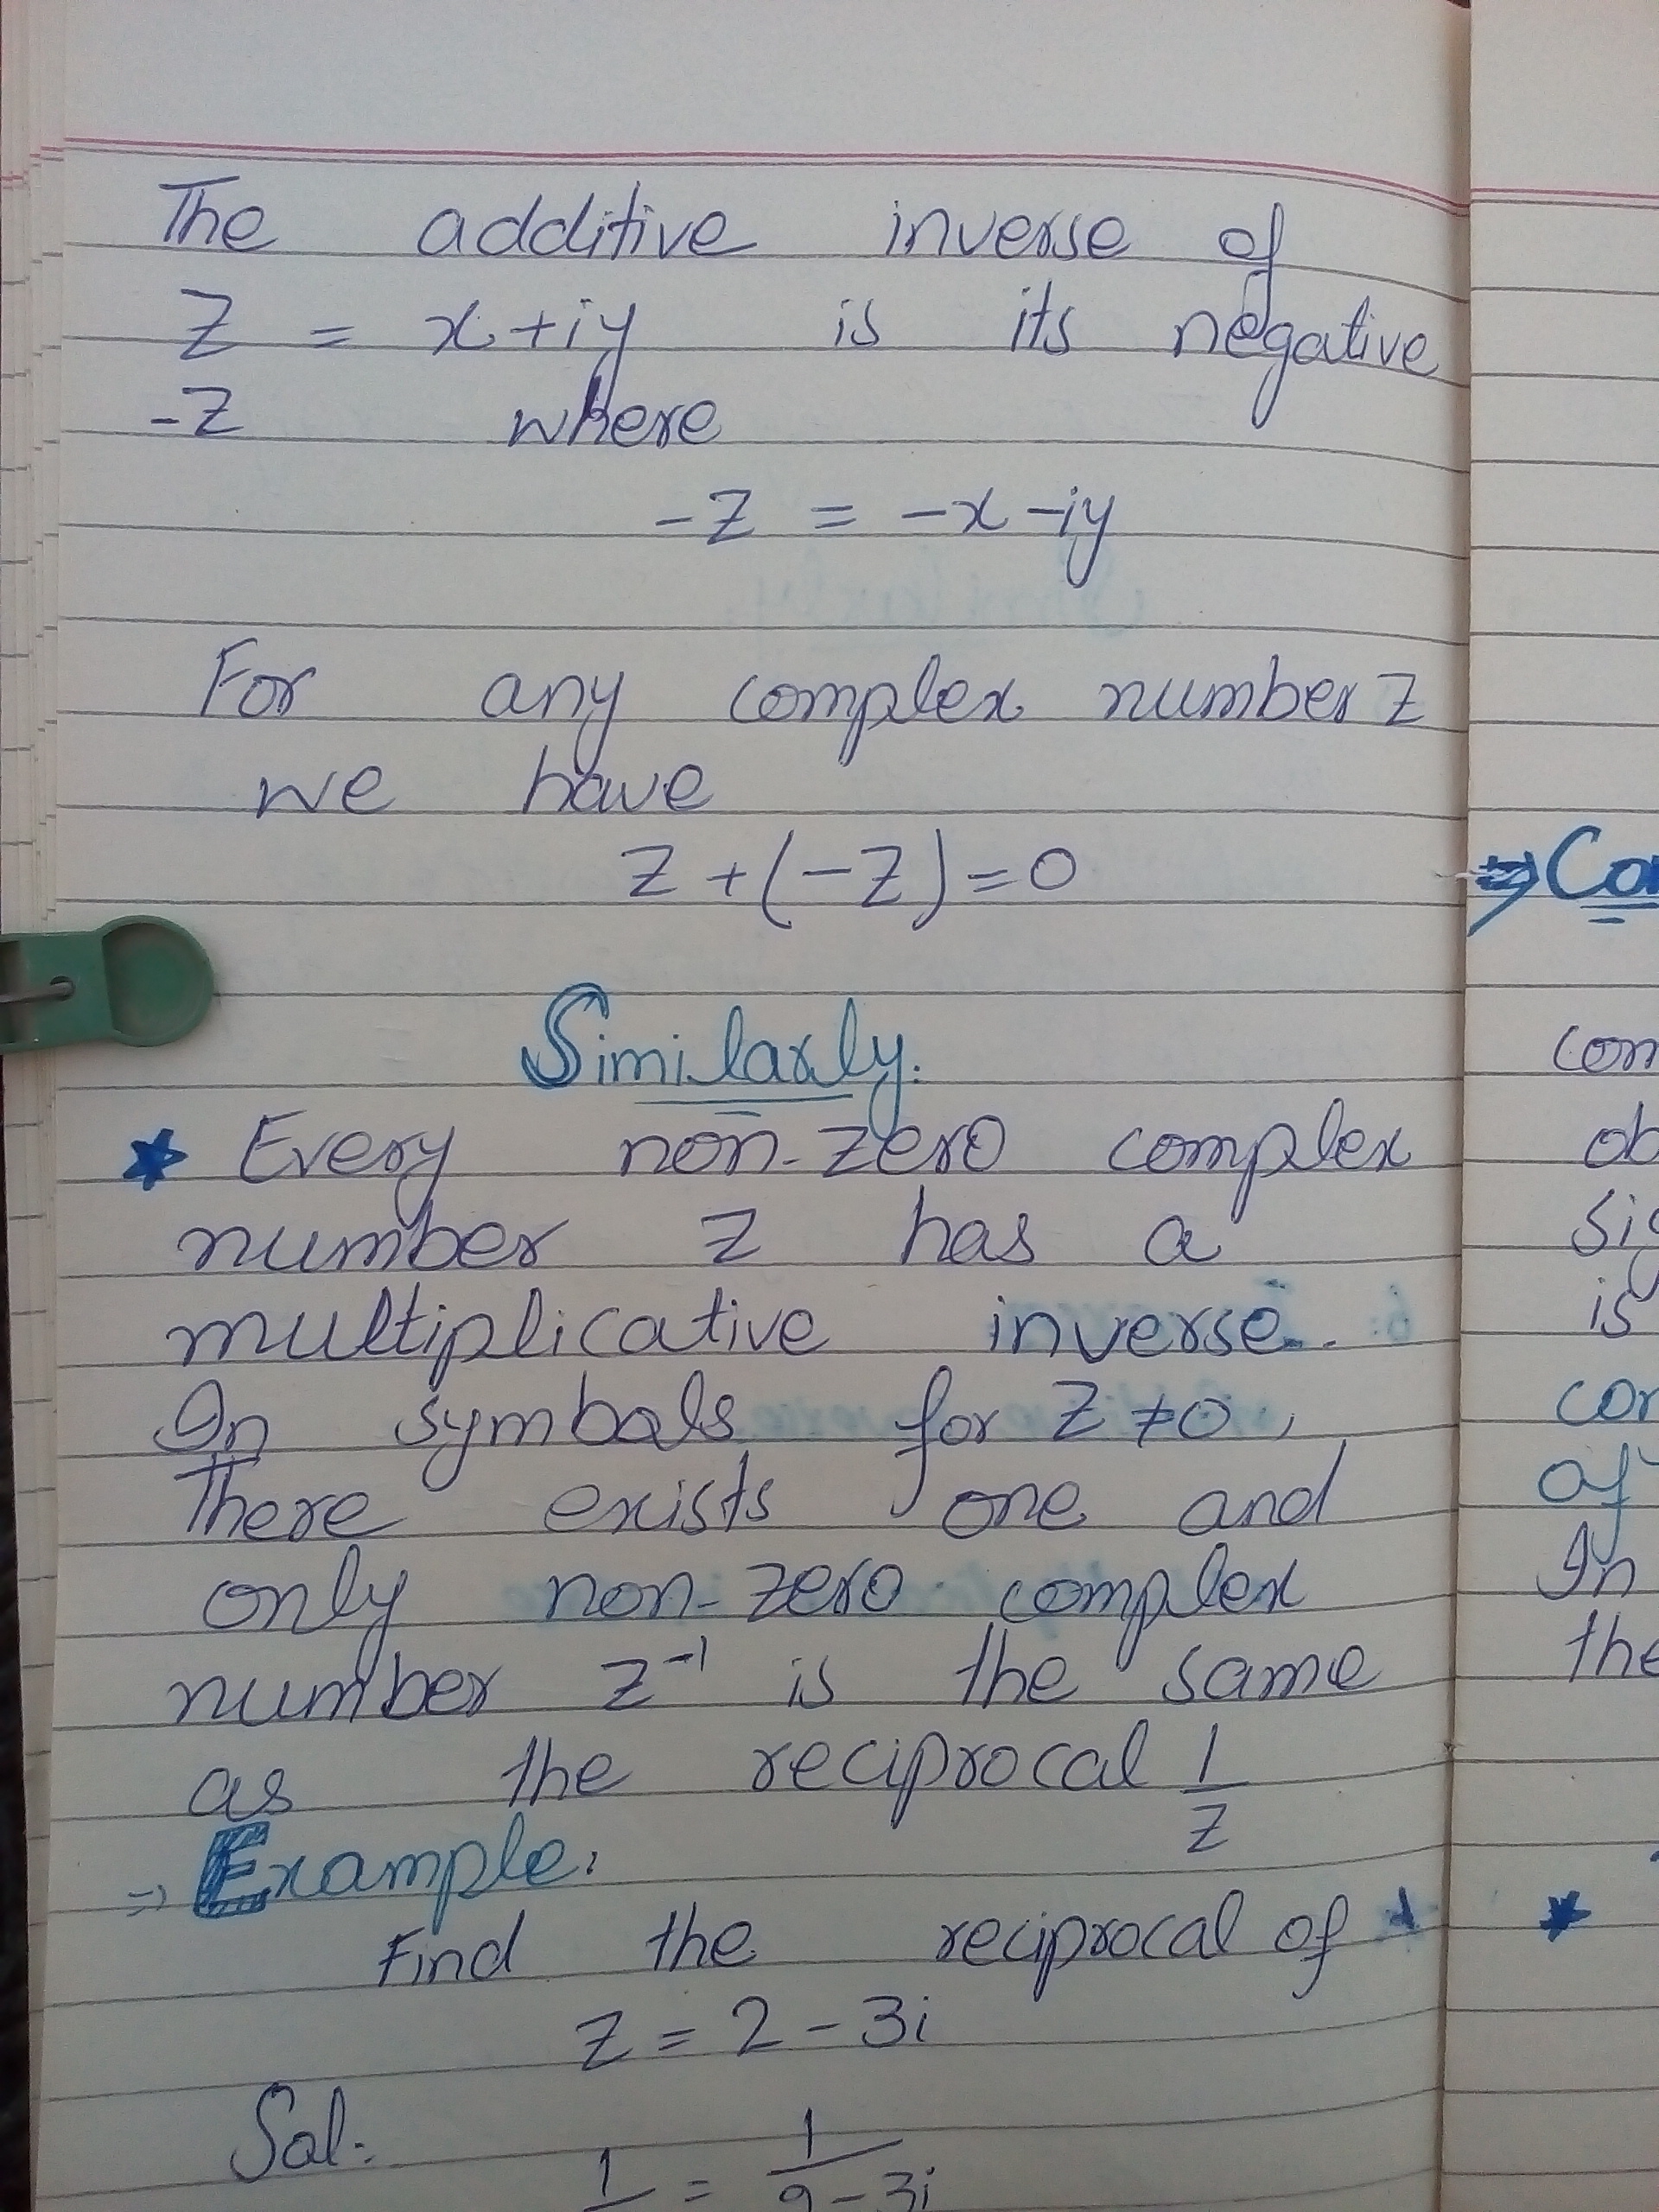 The additive inverse of
z = x+iy is its negative
-z where
-z = -x-iy
For any complex number z
we have
z+(-z)=0
Similarly:
★ Every non-zero complex
number z has a
multiplicative inverse.
In symbols for z≠0,
There exists one and
only non-zero complex
number z⁻¹ is the same
as the reciprocal 1/z
⇒ Example:
Find the reciprocal of
z = 2-3i
Sol:
1 = 1/2-3i
⇒ Co
com
ob
sig
is
con
of
In
the
★